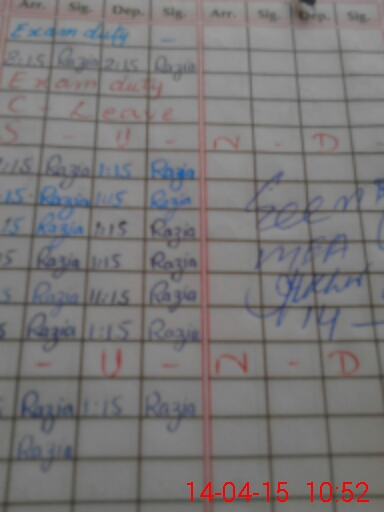 Arr. Sig. Dep. Sig. Arr. Sig. Dep. Sig.
Exam duty -
8:15 Razia 2:15 Razia
Exam duty
C - Leave
S - U - N - D -
:15 Razia 1:15 Razia
:15 Razia 1:15 Razia
15 Razia 1:15 Razia
5 Razia 1:15 Razia
5 Razia 11:15 Razia
5 Razia 1:15 Razia
- U - N - D
Razia 1:15 Razia
Razia
Seen
MEA
14 -
14-04-15 10:52